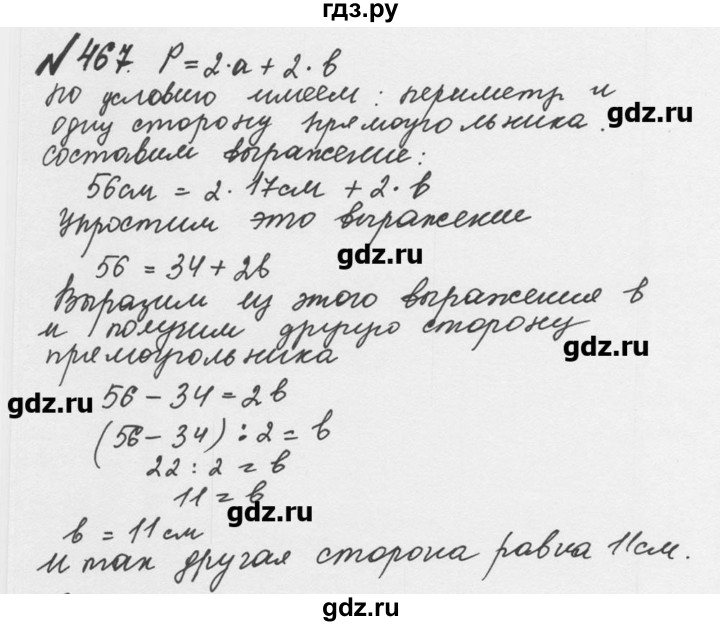 гдз.ру
№467. P = 2·a + 2·b
по условию имеем: периметр и
одну сторону прямоугольника.
gdz.ru
составим выражение:
56см = 2·17см + 2·b
Упростим это выражение
gdz.ru
56 = 34 + 2b
Выразим из этого выражения b
и получим другую сторону
gdz.ru
прямоугольника
gdz.ru
56 - 34 = 2b
(56 - 34) : 2 = b
22 : 2 = b
11 = b
gdz.ru
b = 11 см
И так другая сторона равна 11см.
gdz.ru